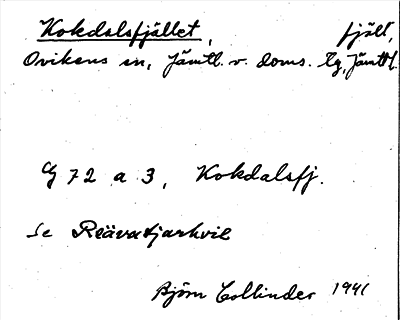 Kokdalsfjället, fjäll,
Ovikens sn, Jämtl. v. doms. lg, Jämtl.
G 72 a 3, Kokdalsfj.
Se
Björn Collinder 1941